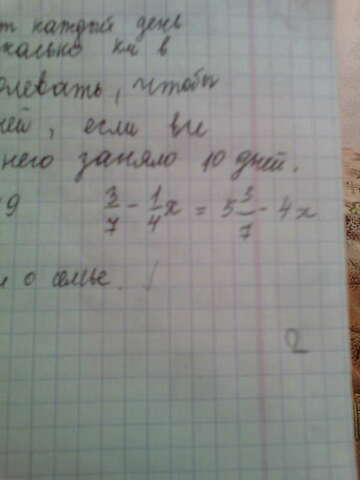 каждый день
км в
левать, чтобы
ней, если
него заняло 10 дней.
9 3/7 - 1/4 x = 5 3/7 - 4x
о семье.
2